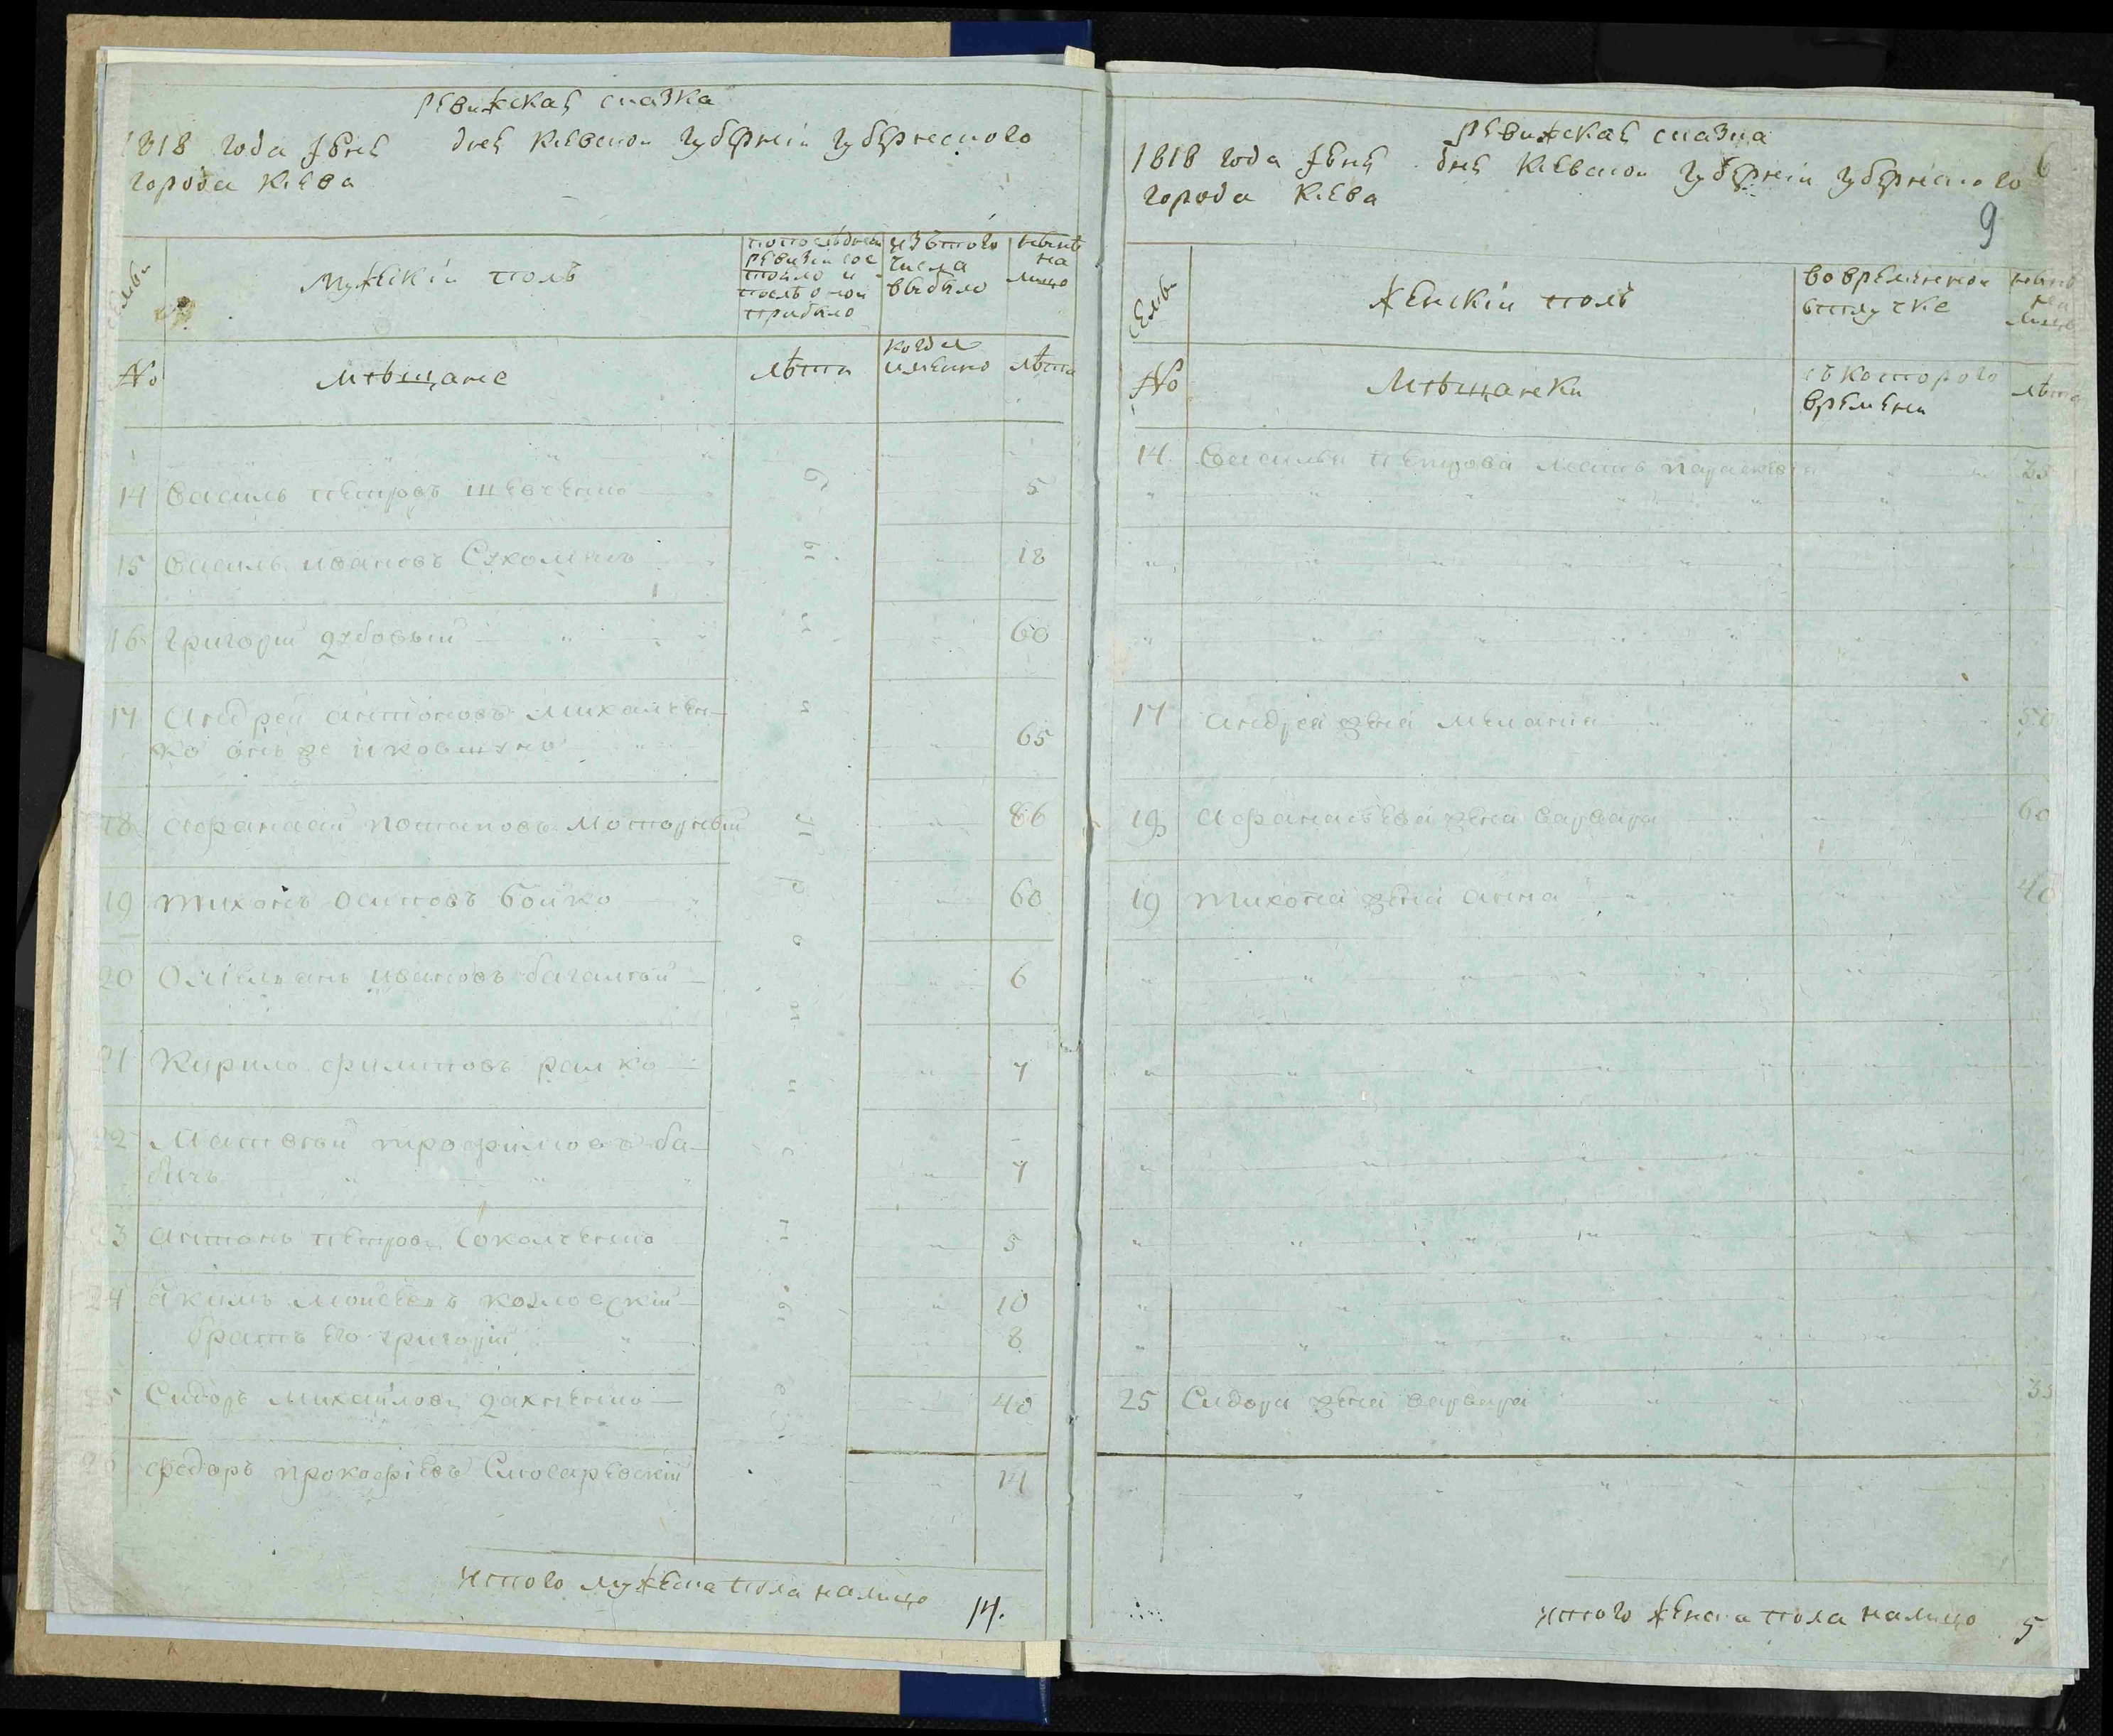 Ревижская сказка
1818 года Июня дня Киевской губерніи губернского
города Киева
Семьи
Мужескій полъ
по последней
ревизіи сос
тояло и
после оной
прибыло
изътого
числа
выбыло
ныне
на
лицо
№
Мѣщане
лѣта
когда
имянно
лѣта
14 Василь Петровъ Шевченко 5
15 Василь Ивановъ 18
16 Григорій Дубовый 60
17 Андрей Антоновъ Михальчен-
ко онъ же 65
18 Афанасій Потаповъ Моторный 86
19 Тихонъ Осиповъ Бойко 60
20 Омельянъ Ивановъ 6
21 Кирило Филиповъ 7
22 Матвѣй Трофимовъ Ба-
бичъ 7
23 Антонъ Петровъ Соколченко 5
24 Якимъ Моисеевъ Козловскій 10
братъ его Григорій 8
25 Сидоръ Михайловъ Дахненко 40
26 Федоръ Прокофіевъ Слюсаревскій 14
итого мужеска пола налицо 14.
Ревижская сказка
1818 года Июня дня Киевской губерніи губернского
города Киева
6
9
Семьи
Женскій полъ
во временной
отлучке
ныне
на
лицо
№
Мѣщанеки
съ которого
времени
лѣта
14 Василья Петрова мать Параскевія 35
17 Андрея жена Меланія 50
18 Афанасьева жена Варвара 60
19 Тихона жена Анна 40
25 Сидора жена Варвара 35
итого женска пола налицо 5